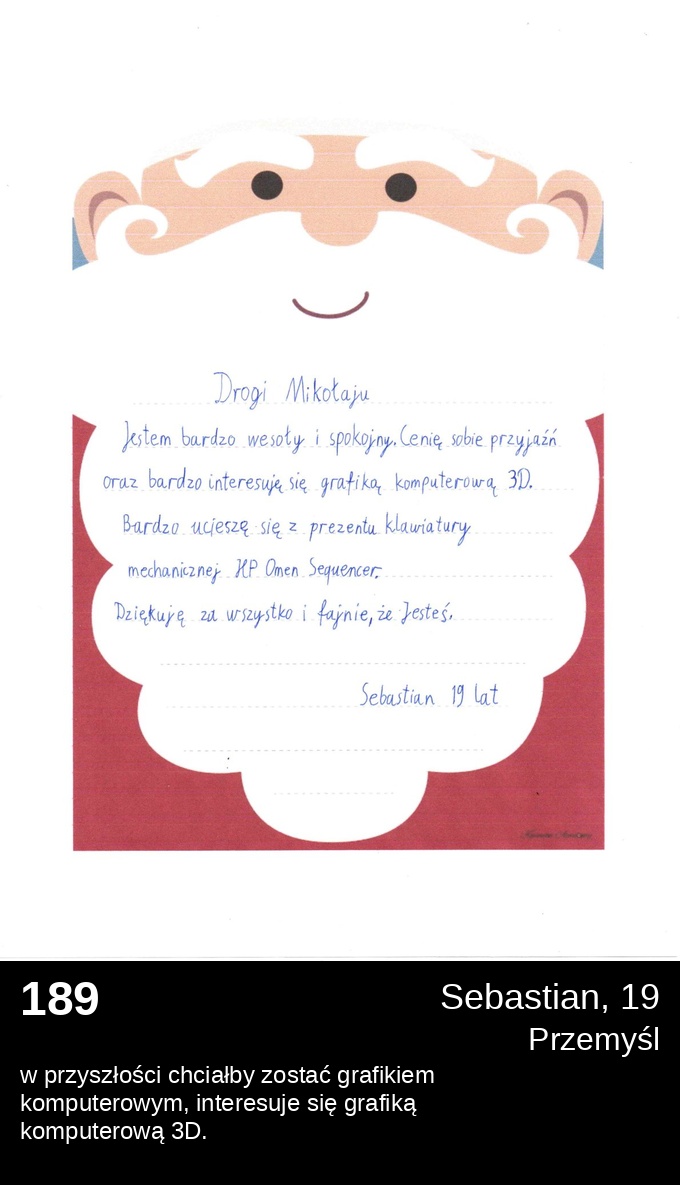 Drogi Mikołaju
Jestem bardzo wesoły i spokojny. Cenię sobie przyjaźń
oraz bardzo interesuję się grafiką komputerową 3D.
Bardzo ucieszę się z prezentu klawiatury
mechanicznej HP Omen Sequencer.
Dziękuję za wszystko i fajnie, że Jesteś.
Sebastian 19 lat
189
Sebastian, 19
Przemyśl
w przyszłości chciałby zostać grafikiem
komputerowym, interesuje się grafiką
komputerową 3D.